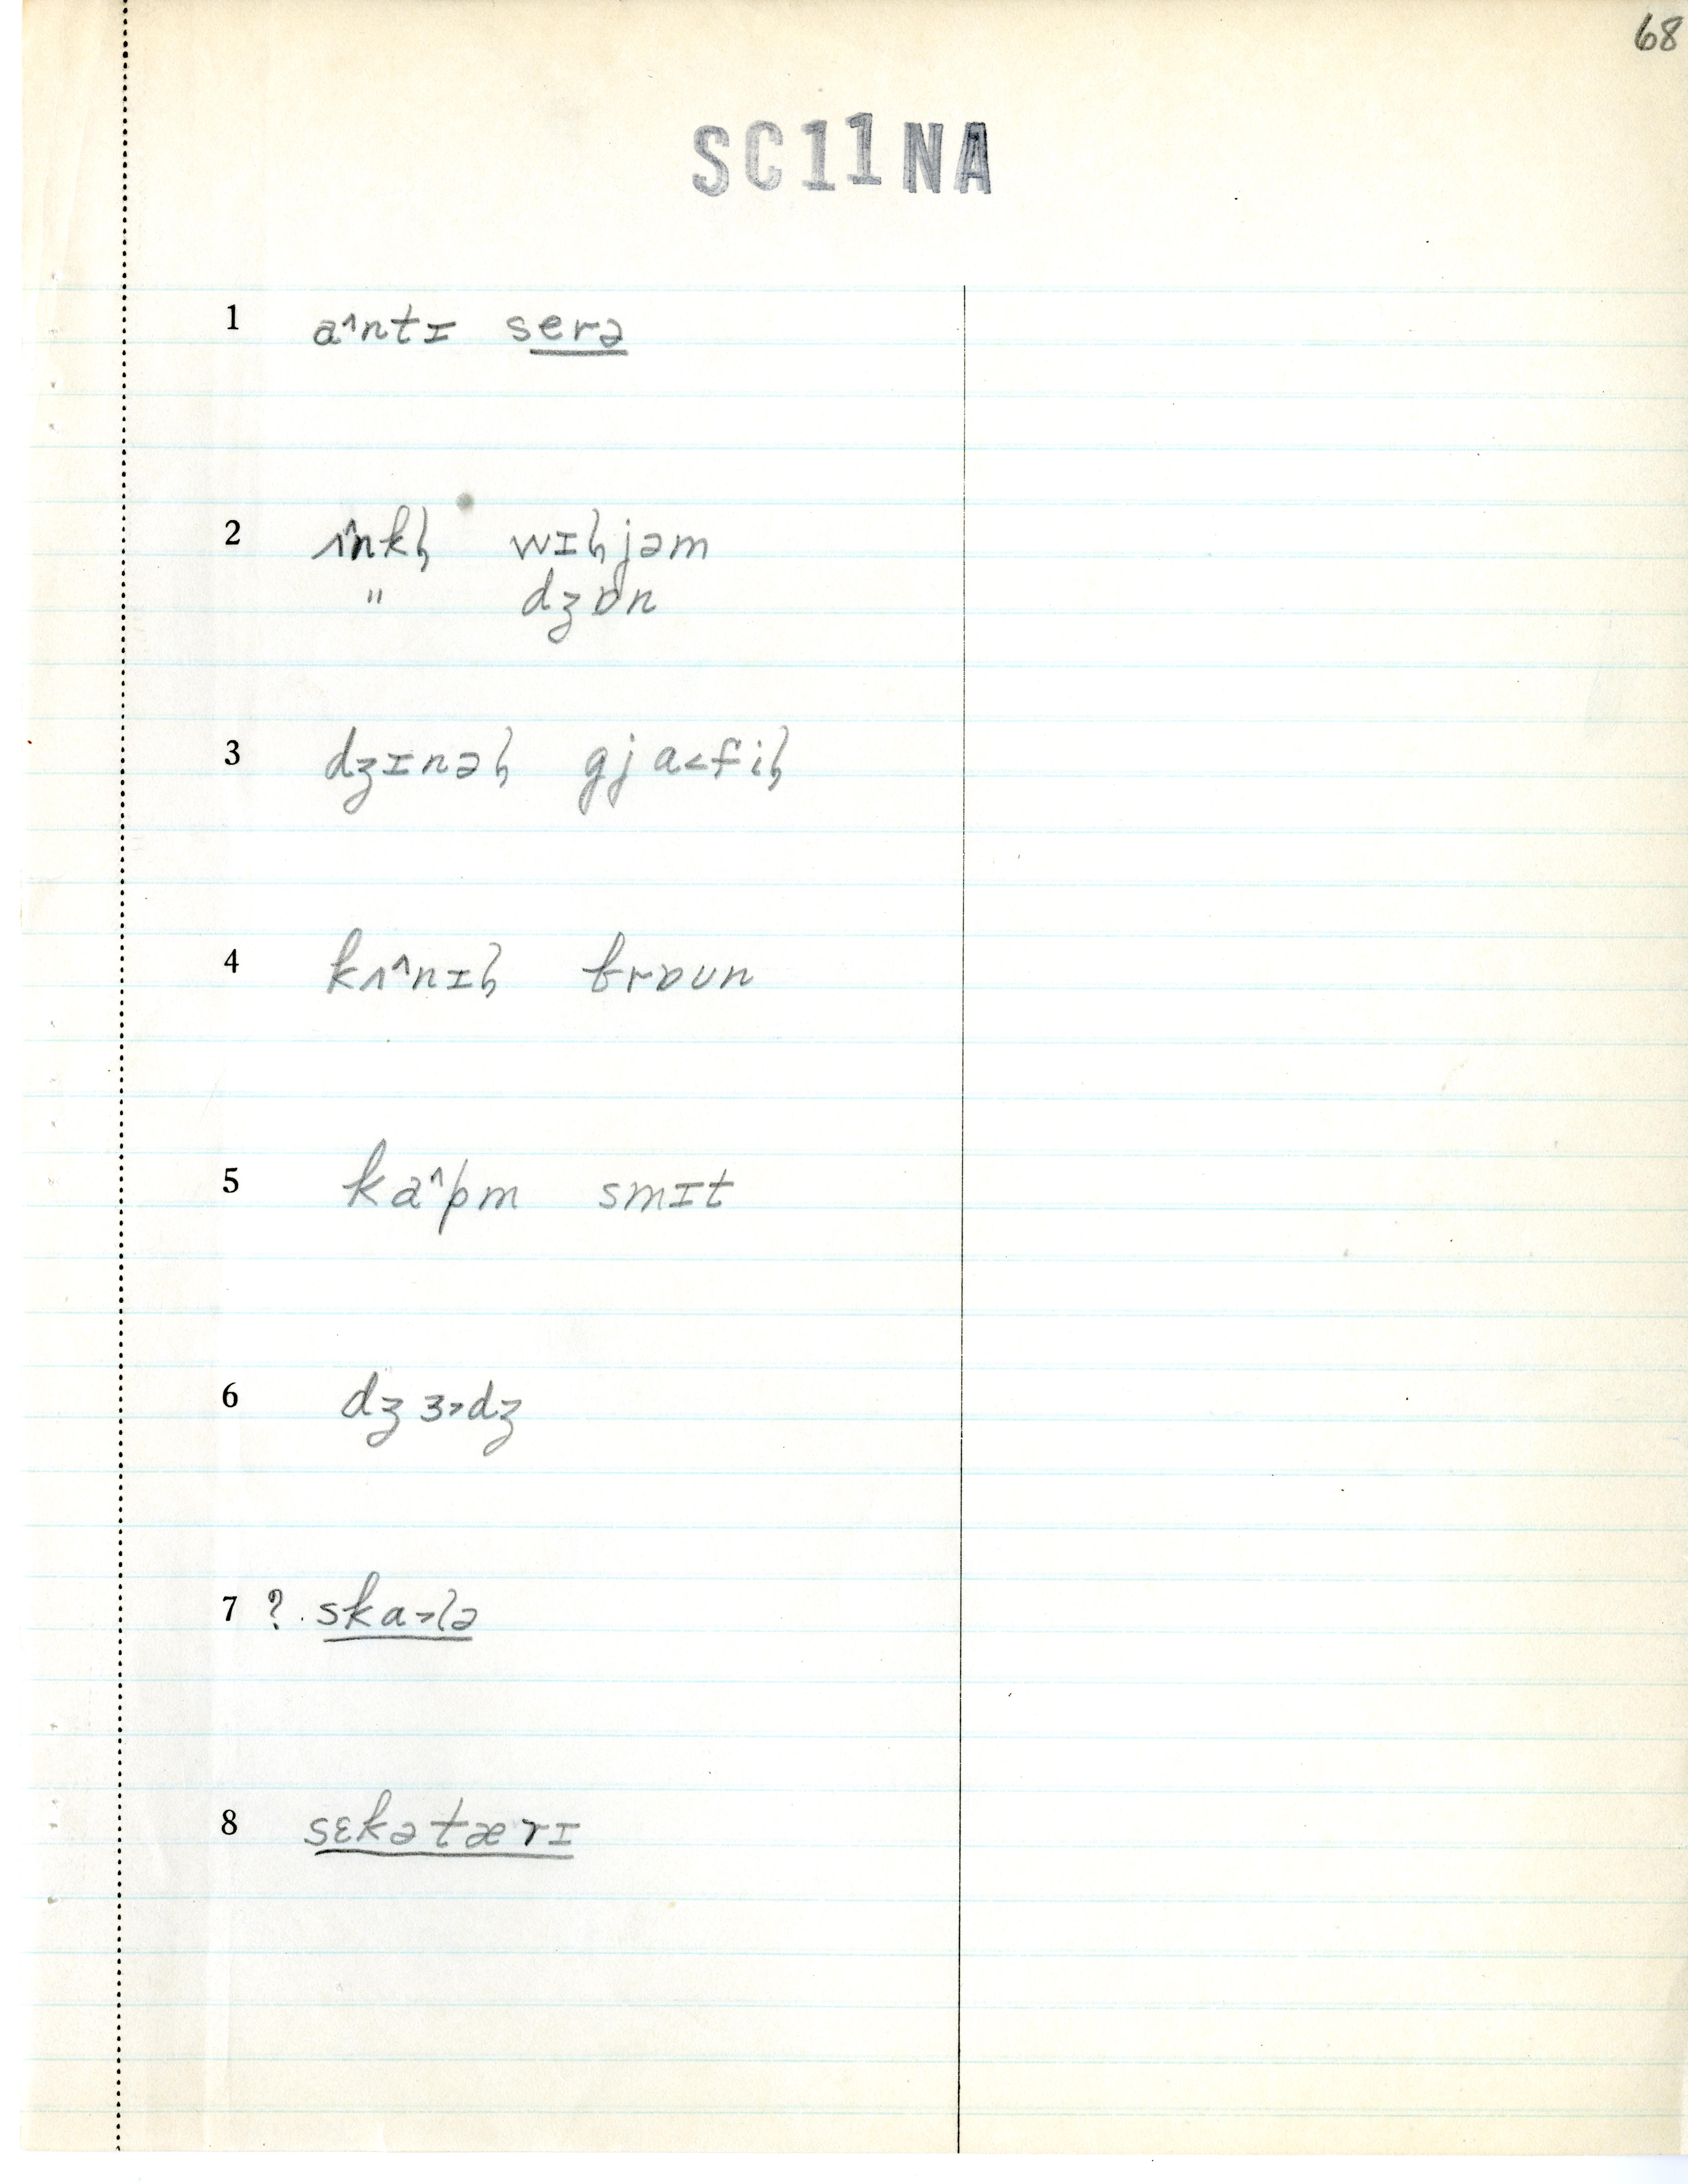 68
SC11NA
1 a^ntɪ serə
2 ʌ^nkɫ wɪɫjəm
" dʒɒn
3 dʒɪnəɫ gja<fiɫ
4 kʌ^nɪɫ brɒun
5 ka^pm smɪt
6 dʒɜ>dʒ
7 ? ska>lə
8 sɛkətærɪ